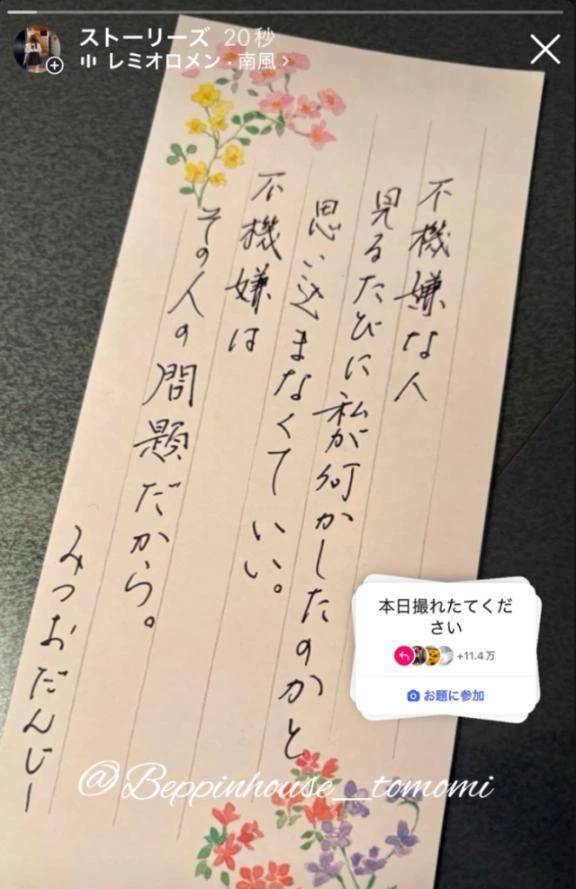 ストーリーズ 20秒
レミオロメン・南風 >
不機嫌な人
見るたびに私が何かしたのかと
思い込まなくていい。
不機嫌は
その人の問題だから。
みつおだんじー
本日撮れたてくだ
さい
+11.4万
お題に参加
@Beppinhouse__tomomi